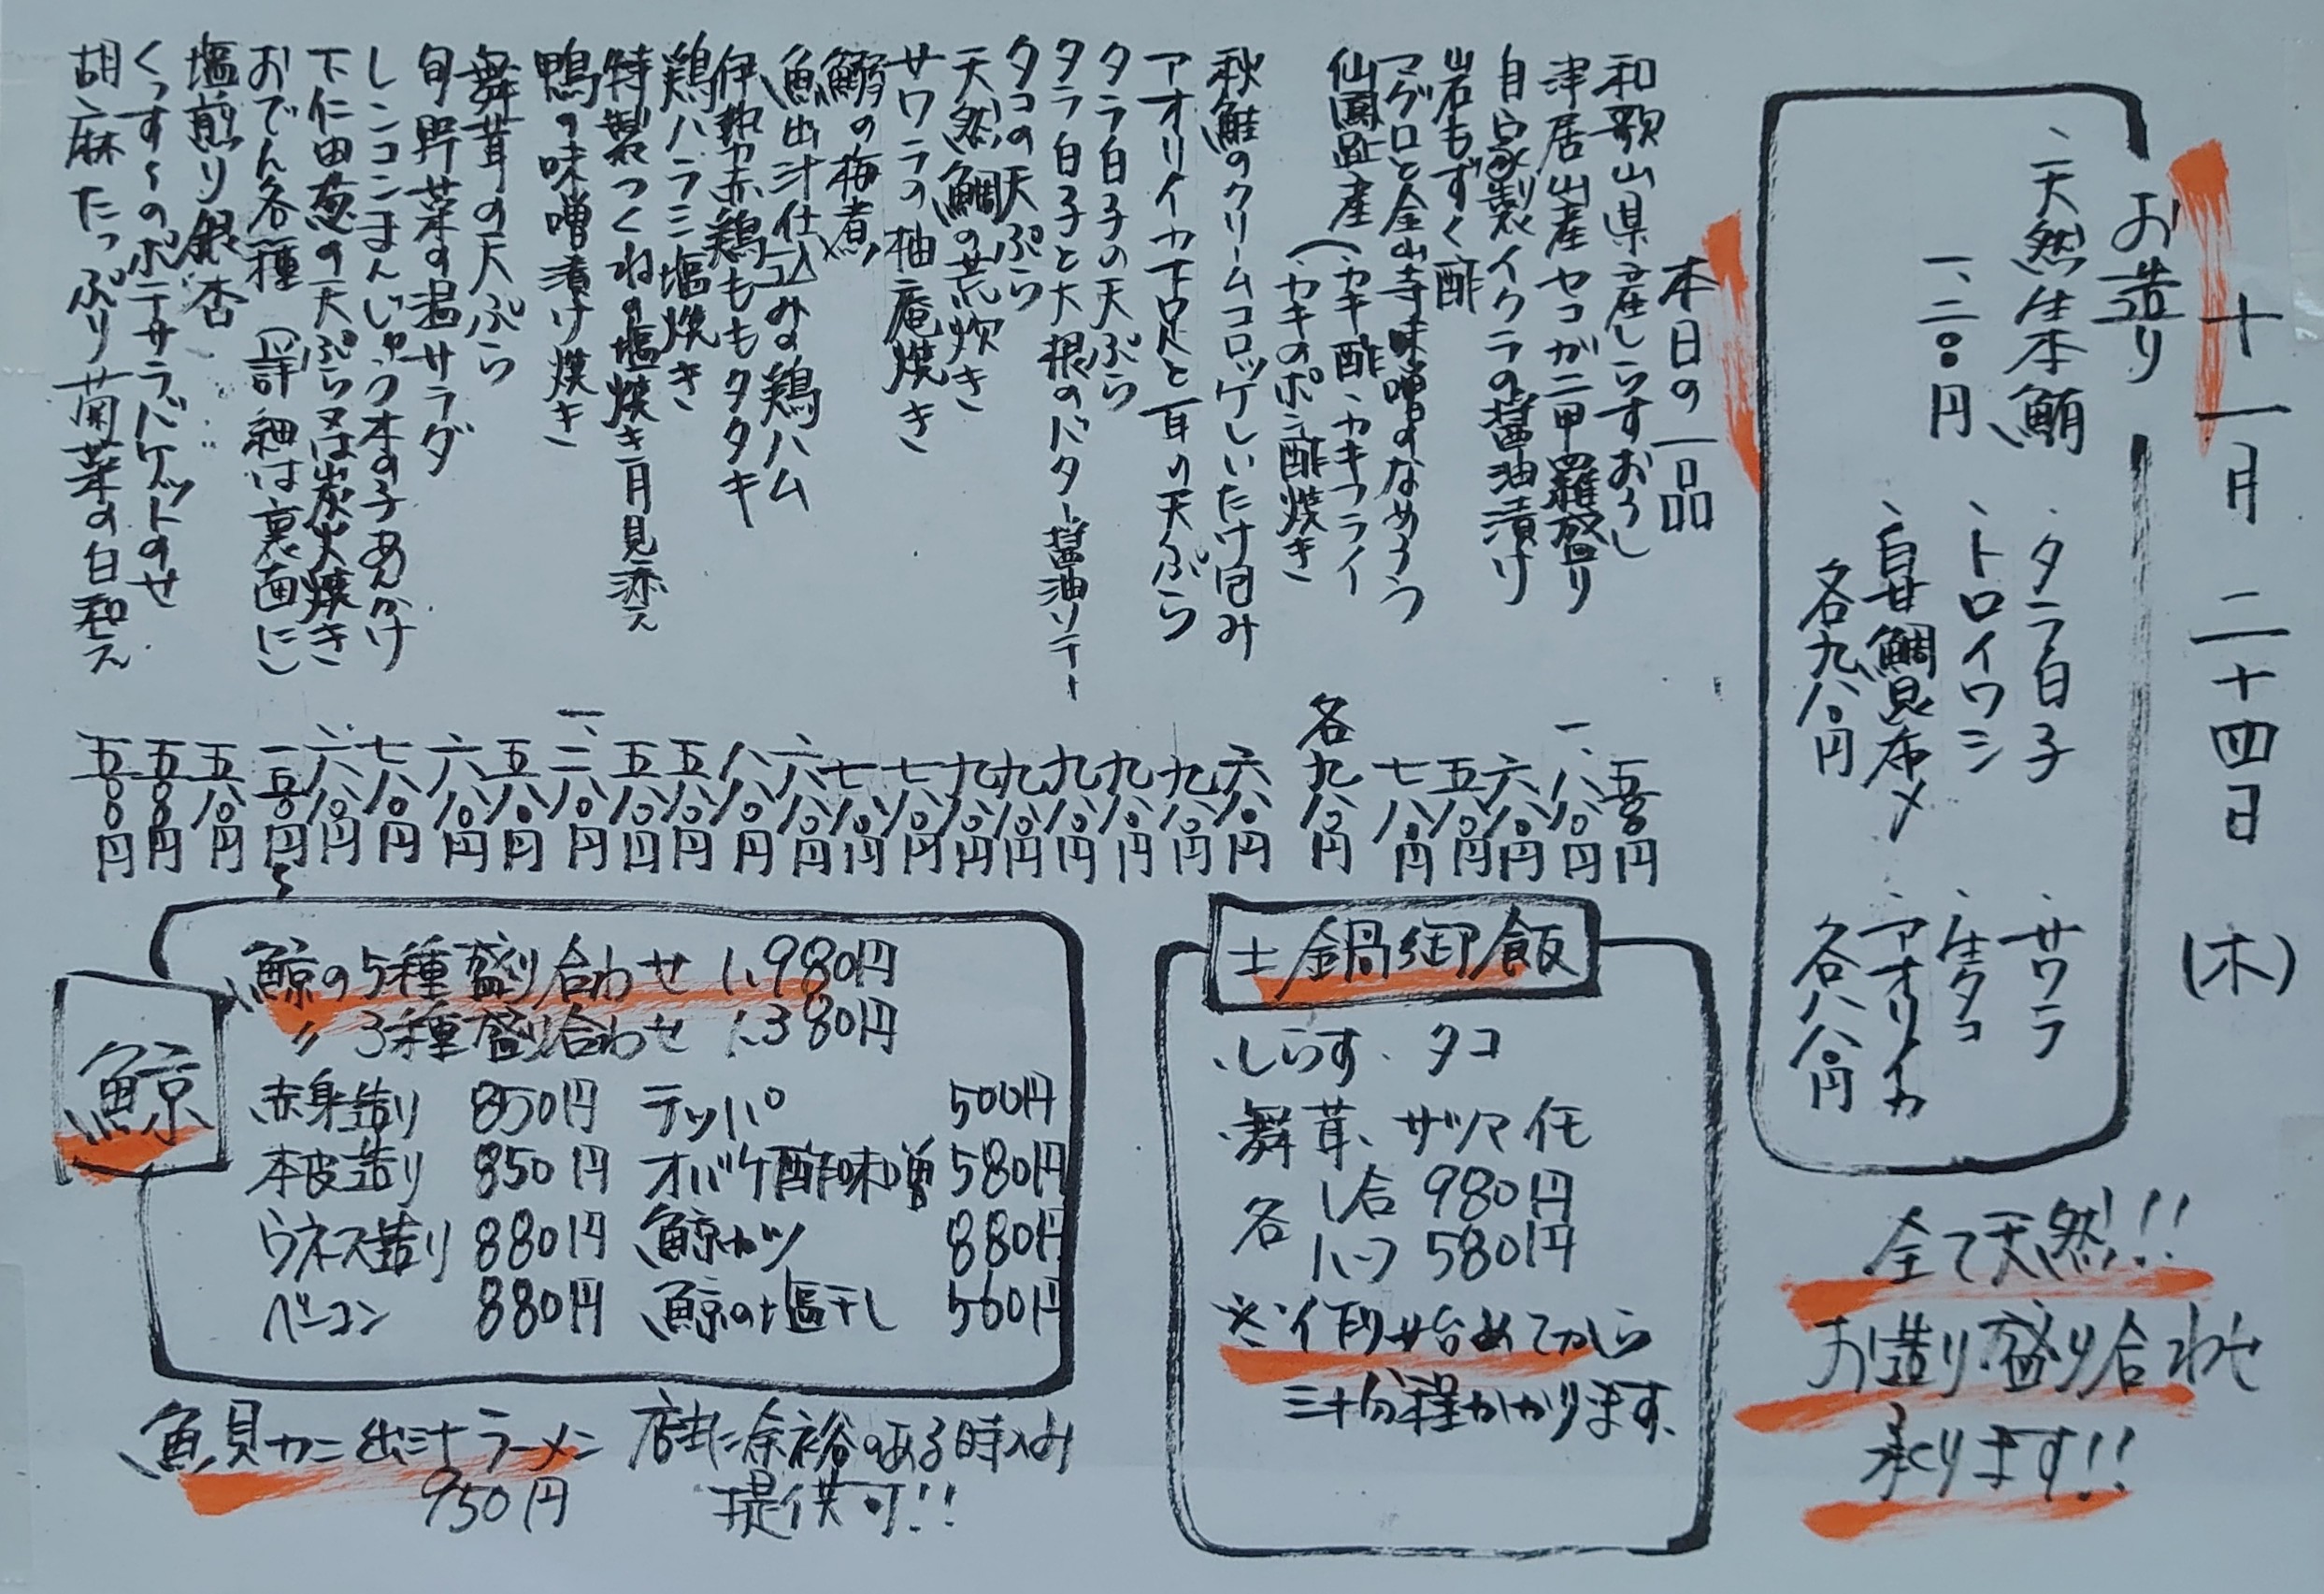 十一月二十四日(木)
お造り
、天然生本鮪
一、二〇〇円
、タラ白子
、トロイワシ
、白甘鯛昆布〆
各九八〇円
、サワラ
、生タコ
、アオリイカ
各八八〇円
全て天然!!
お造り盛り合わせ
承ります!!
本日の一品
和歌山県産しらすおろし 五五〇円
津居山産セコガニ甲羅盛り 一、八八〇円
自家製イクラの醤油漬け 六八〇円
岩もずく酢 五八〇円
マグロと金山寺味噌のなめろう 七八〇円
仙鳳趾産(カキ酢、カキフライ
カキのポン酢焼き 各九八〇円
秋鮭のクリームコロッケしいたけ包み 六八〇円
アオリイカ下足と耳の天ぷら 九八〇円
タラ白子の天ぷら 九八〇円
タラ白子と大根のバター醤油ソテー 九八〇円
タコの天ぷら 九八〇円
天然鯛の荒炊き 九八〇円
サワラの柚庵焼き 七八〇円
鰯の梅煮 七八〇円
魚出汁仕込みの鶏ハム 六八〇円
伊勢赤鶏ももタタキ 八八〇円
鶏ハラミ塩焼き 五八〇円
特製つくねの塩焼き月見添え 五八〇円
鴨の味噌漬け焼き 一、二八〇円
舞茸の天ぷら 五八〇円
旬野菜の温サラダ 六八〇円
レンコンまんじゅう木の子あんかけ 七八〇円
下仁田葱の天ぷら又は炭火焼き 六八〇円
おでん各種(詳細は裏面に) 一五〇円〜
塩煎り銀杏 五八〇円
くっす〜のポテサラバケットのせ 五〇〇円
胡麻たっぷり菊菜の白和え 五〇〇円
土鍋御飯
、しらす、タコ
、舞茸、サツマイモ
各 1合 980円
ハーフ 580円
※作り始めてから
三十分程かかります、
鯨
鯨の5種盛り合わせ 1,980円
〃 3種盛り合わせ 1,380円
赤身造り 850円 テッパ 500円
本皮造り 850円 オバケ酢味噌 580円
ウネス造り 880円 鯨カツ 880円
ベーコン 880円 鯨の塩干し 560円
魚貝カニ出汁ラーメン 店に余裕のある時のみ
950円 提供可!!